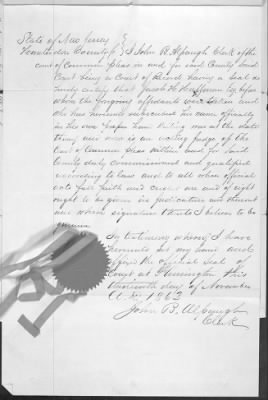 State of New Jersey
Hunterdon County ss I John B. Alpaugh Clerk of the
Court of Common Pleas in and for said County Said
Court being a Court of Record having a Seal do
hereby certify that Jacob H. Huffman Esq before
whom the foregoing affidavits were taken and
who has hereunto subscribed his name officially
in his own proper hand writing was at the date
thereof and now is an acting Judge of the
Court of Common Pleas within and for said
County duly Commissioned and qualified
according to law and to all whose official
acts full faith and credit are and of right
ought to be given in judicature and thereout
and whose signature thereto I believe to be
genuine
In testimony whereof I have
hereunto set my hand and
affixed the original Seal of
Court at Flemington this
day of November
A.D. 1862
John B. Alpaugh
Clerk